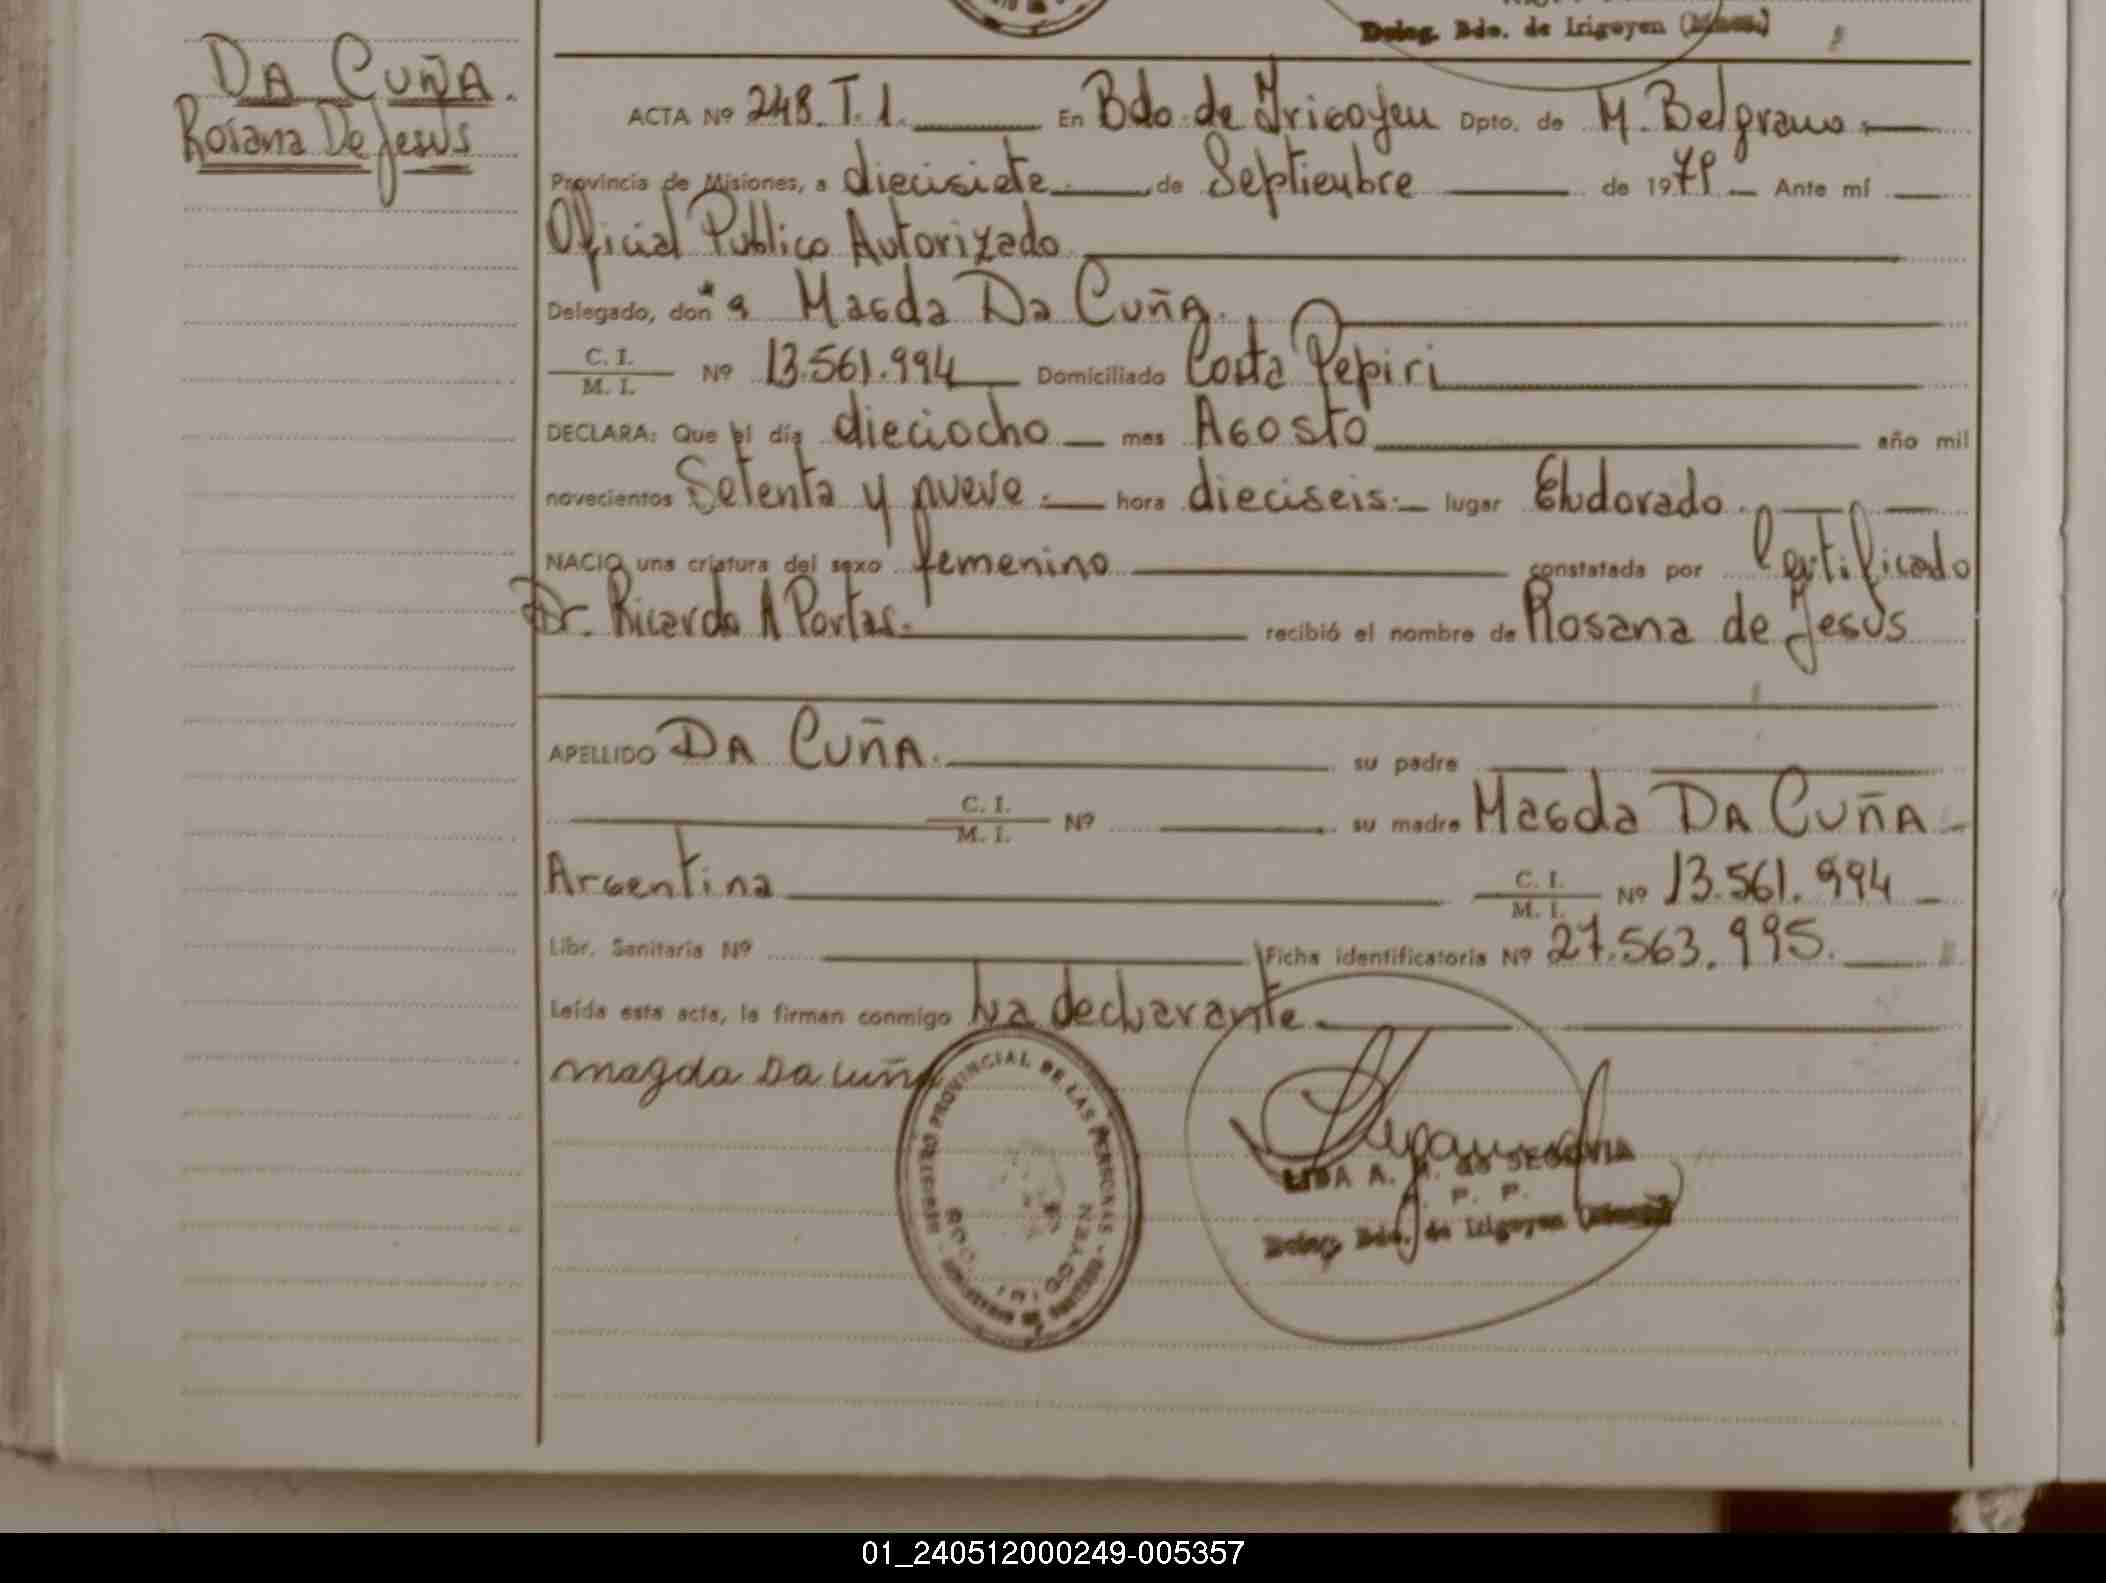 Deleg. Bdo. de Irigoyen (Mnes.)
DA CUÑA.
Rosana De Jesus
ACTA Nº 248. T. 1. En Bdo. de Irigoyen Dpto. de M. Belgrano.
Provincia de Misiones, a diecisiete de Septiembre de 1979 Ante mí
Oficial Publico Autorizado
Delegado, don ª Magda Da Cuña.
C. I.
M. I. Nº 13.561.994 Domiciliado Costa Pepiri
DECLARA: Que el día dieciocho mes Agosto año mil
novecientos Setenta y nueve hora dieciseis lugar Eldorado.
NACIO una criatura del sexo femenino constatada por Certificado
Dr. Ricardo A Portas. recibió el nombre de Rosana de Jesus
APELLIDO DA CUÑA. su padre
C. I.
M. I. Nº su madre Magda DA CUÑA
Argentina C. I.
M. I. Nº 13.561.994
Libr. Sanitaria Nº Ficha identificatoria Nº 27.563.995.
Leída esta acta, la firman conmigo la declarante.
magda Da Cuña
REGISTRO PROVINCIAL DE LAS PERSONAS
BDO. IRIGOYEN
LIDA A. de SEGOVIA
P. P.
Deleg. Bdo. de Irigoyen
01_240512000249-005357